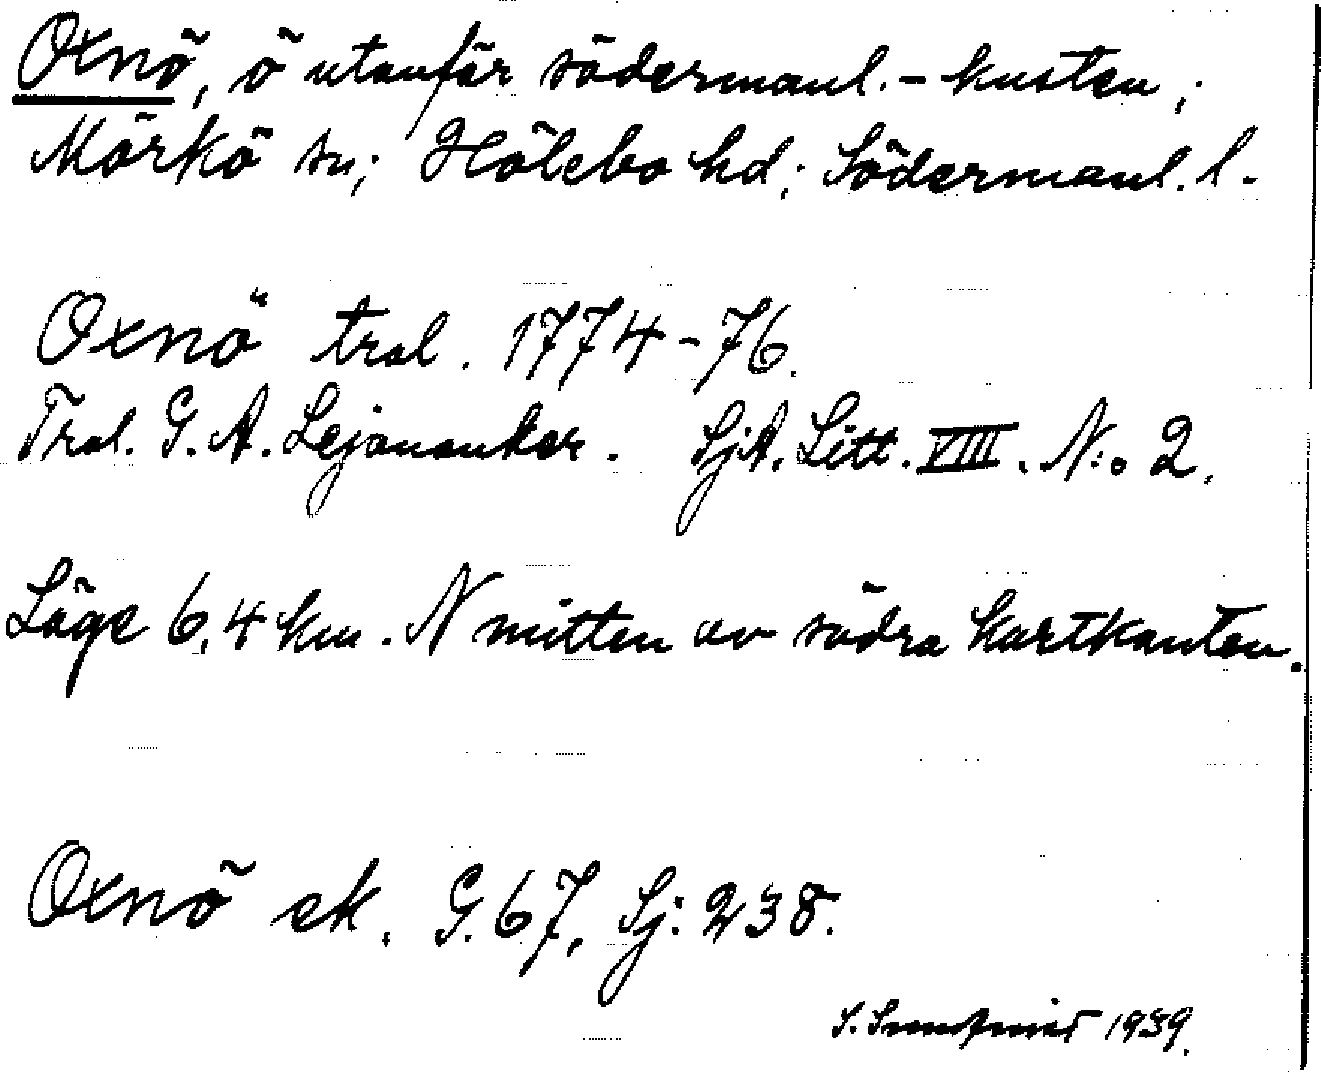 Oxnö, ö utanför södermanl.-kusten,
Mörkö sn; Hölebo hd; Södermanl. l.
Oxnö trol. 1774-76.
Trol. G. A. Lejonanker. SjA. Litt. VIII. N:o 2.
Läge 6,4 km. N mitten av södra kartkanten.
Oxnö ek. G. 67, Sj: 238.
S. 1939.